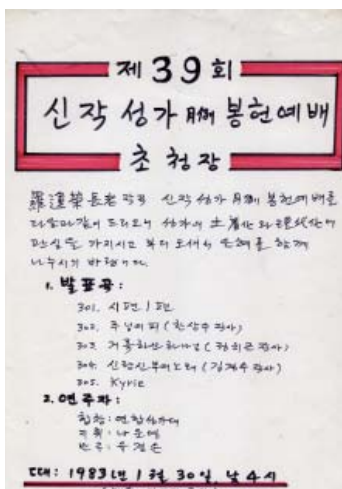 제 39 회
신작 성가 月例 봉헌예배
초 청 장
羅運榮長老 작곡 신작 성가 月例 봉헌예배를
다음과 같이 드리오니 성가의 土着化와 現代化에
관심을 가지시고 부디 오셔서 은혜를 함께
나누시기 바랍니다.
1. 발표곡:
301. 시편 1편
302. 주님의 피 (한상수 작사)
303. 거룩하신 하나님 (작사)
304. 신랑신부의 노래 (작사)
305. Kyrie
2. 연주자:
합창: 연합성가대
지휘: 나운영
반주:
때: 1983년 1월 30일, 낮 4시